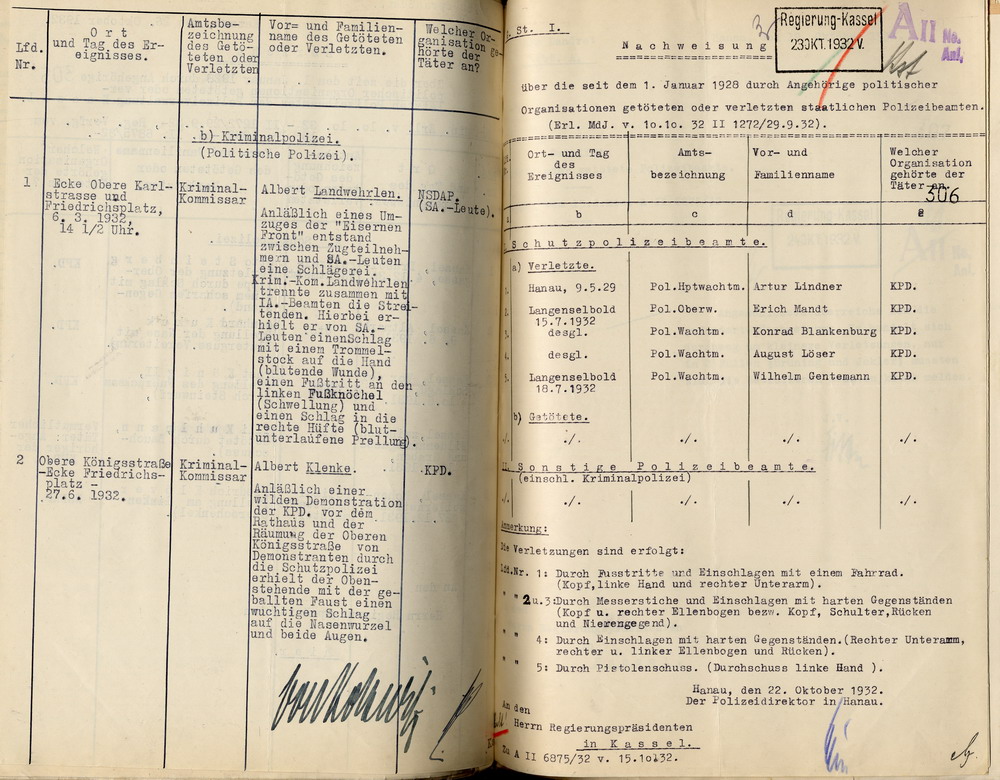 Lfd. Nr.
O r t und Tag des Er-
eignisses.
Amtsbe-
zeichnung
des Getö-
teten oder
Verletzten
Vor= und Familien-
name des Getöteten
oder Verletzten.
Welcher Or-
ganisation ge-
hörte der
Täter an?
b) Kriminalpolizei.
(Politische Polizei).
1
Ecke Obere Karl-
strasse und
Friedrichsplatz,
6. 3. 1932,
14 1/2 Uhr.
Kriminal-
Kommissar
Albert Landwehrlen.
Anläßlich eines Um-
zuges der "Eisernen
Front" entstand
zwischen Zugteilneh-
mern und SA.-Leuten
eine Schlägerei.
Krim.-Kom.Landwehrlen
trennte zusammen mit
IA.-Beamten die Strei-
tenden. Hierbei er-
hielt er von SA.-
Leuten einenSchlag
mit einem Trommel-
stock auf die Hand
(blutende Wunde),
einen Fußtritt an den
linken Fußknöchel
(Schwellung) und
einen Schlag in die
rechte Hüfte (blut-
unterlaufene Prellung).
NSDAP.
(SA.-Leute).
2
Obere Königsstraße
-Ecke Friedrichs-
platz -
27.6. 1932.
Kriminal-
Kommissar
Albert Klenke.
Anläßlich einer
wilden Demonstration
der KPD. vor dem
Rathaus und der
Räumung der Oberen
Königsstraße von
Demonstranten durch
die Schutzpolizei
erhielt der Oben-
stehende mit der ge-
ballten Faust einen
wuchtigen Schlag
auf die Nasenwurzel
und beide Augen.
KPD.
St. I.
Regierung-Kassel
23OKT.1932 V.
A II No.
Anl.
N a c h w e i s u n g
über die seit dem 1. Januar 1928 durch Angehörige politischer
Organisationen getöteten oder verletzten staatlichen Polizeibeamten.
(Erl. MdJ. v. 1o.1o. 32 II 1272/29.9.32).
Ort- und Tag
des
Ereignisses
Amts-
bezeichnung
Vor- und
Familienname
Welcher
Organisation
gehörte der
Täter an.
306
b c d e
S c h u t z p o l i z e i b e a m t e.
a) Verletzte.
Hanau, 9.5.29 Pol.Hptwachtm. Artur Lindner KPD.
Langenselbold Pol.Oberw. Erich Mandt KPD.
15.7.1932
desgl. Pol.Wachtm. Konrad Blankenburg KPD.
desgl. Pol.Wachtm. August Löser KPD.
Langenselbold Pol.Wachtm. Wilhelm Gentemann KPD.
18.7.1932
b) Getötete.
./. ./. ./. ./. ./.
II. S o n s t i g e P o l i z e i b e a m t e.
(einschl. Kriminalpolizei)
./. ./. ./. ./. ./.
Anmerkung:
Die Verletzungen sind erfolgt:
Lfd.Nr. 1: Durch Fusstritte und Einschlagen mit einem Fahrrad.
(Kopf,linke Hand und rechter Unterarm).
" " 2u.3:Durch Messerstiche und Einschlagen mit harten Gegenständen
(Kopf u. rechter Ellenbogen bezw. Kopf, Schulter,Rücken
und Nierengegend).
" " 4: Durch Einschlagen mit harten Gegenständen.(Rechter Unteramm,
rechter u. linker Ellenbogen und Rücken).
" " 5: Durch Pistolenschuss. (Durchschuss linke Hand ).
Hanau, den 22. Oktober 1932.
Der Polizeidirektor in Hanau.
An den
Herrn Regierungspräsidenten
in K a s s e l.
Zu A II 6875/32 v. 15.1o.32.